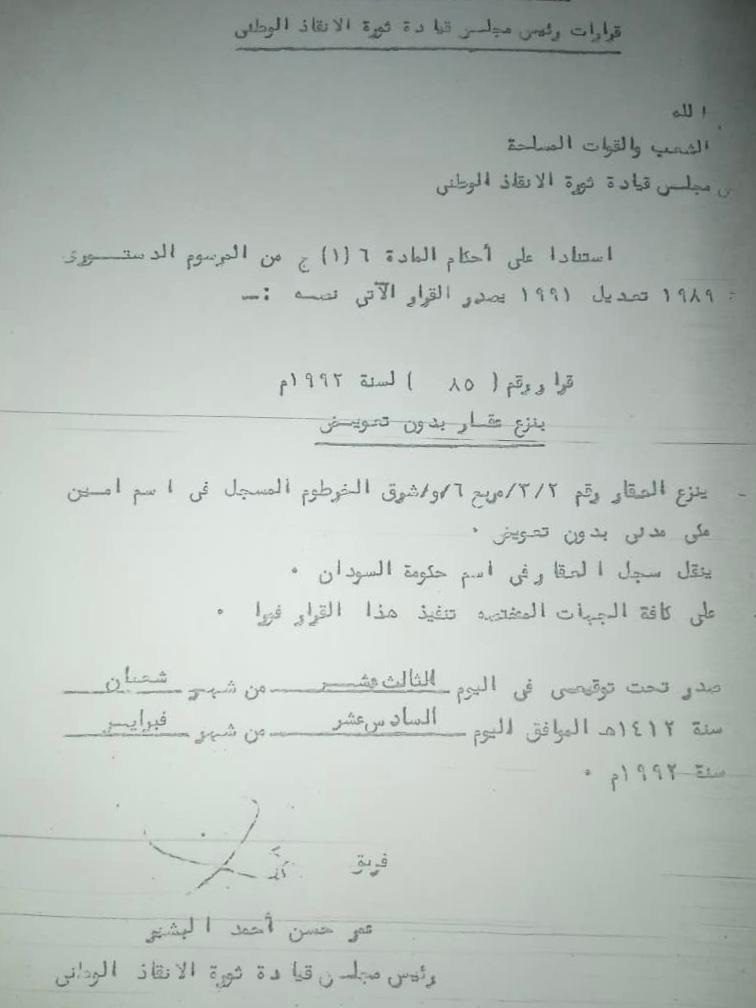 قرارات رئيس مجلس قيادة ثورة الانقاذ الوطنى
الله
الشعب والقوات المسلحة
مجلس قيادة ثورة الانقاذ الوطنى
استنادا على أحكام المادة ٦ (١) ج من المرسوم الدستورى
١٩٨٩ تعديل ١٩٩١ يصدر القرار الآتى نصه :ـ
قرار رقم ( ٨٥ ) لسنة ١٩٩٢م
بنزع عقار بدون تعويض
ينزع العقار رقم ٣/٢/مربع ٦/و/شرق الخرطوم المسجل فى اسم امين
مكى مدنى بدون تعويض .
ينقل سجل العقار فى اسم حكومة السودان .
على كافة الجهات المختصه تنفيذ هذا القرار فورا .
صدر تحت توقيعى فى اليوم الثالث عشر من شهر شعبان
سنة ١٤١٢هـ الموافق اليوم السادس عشر من شهر فبراير
سنة ١٩٩٢م .
فريق
عمر حسن أحمد البشير
رئيس مجلس قيادة ثورة الانقاذ الوطنى